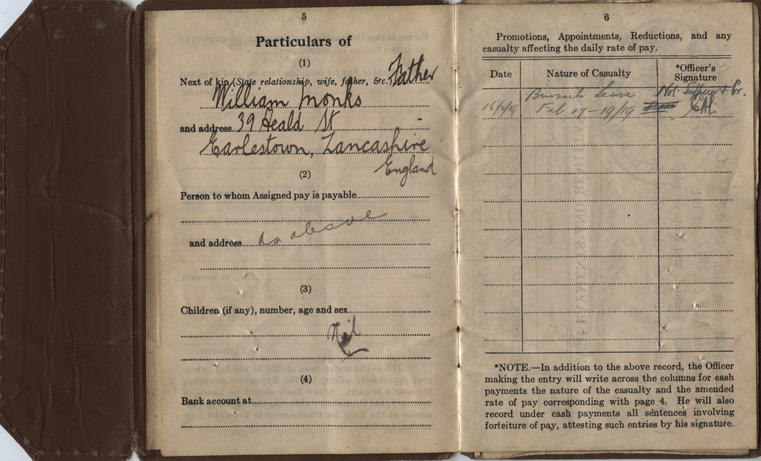 5
Particulars of
(1)
Next of kin (State relationship, wife, father, &c.) Father
William Monks
and address 39 Heald St
Earlestown, Lancashire
England
(2)
Person to whom Assigned pay is payable
and address as above
(3)
Children (if any), number, age and sex
Nil
(4)
Bank account at
6
Promotions, Appointments, Reductions, and any
casualty affecting the daily rate of pay.
Date
Nature of Casualty
*Officer's
Signature
Leave
Not
Feb 17-19/19
*NOTE.—In addition to the above record, the Officer
making the entry will write across the columns for cash
payments the nature of the casualty and the amended
rate of pay corresponding with page 4. He will also
record under cash payments all sentences involving
forfeiture of pay, attesting such entries by his signature.